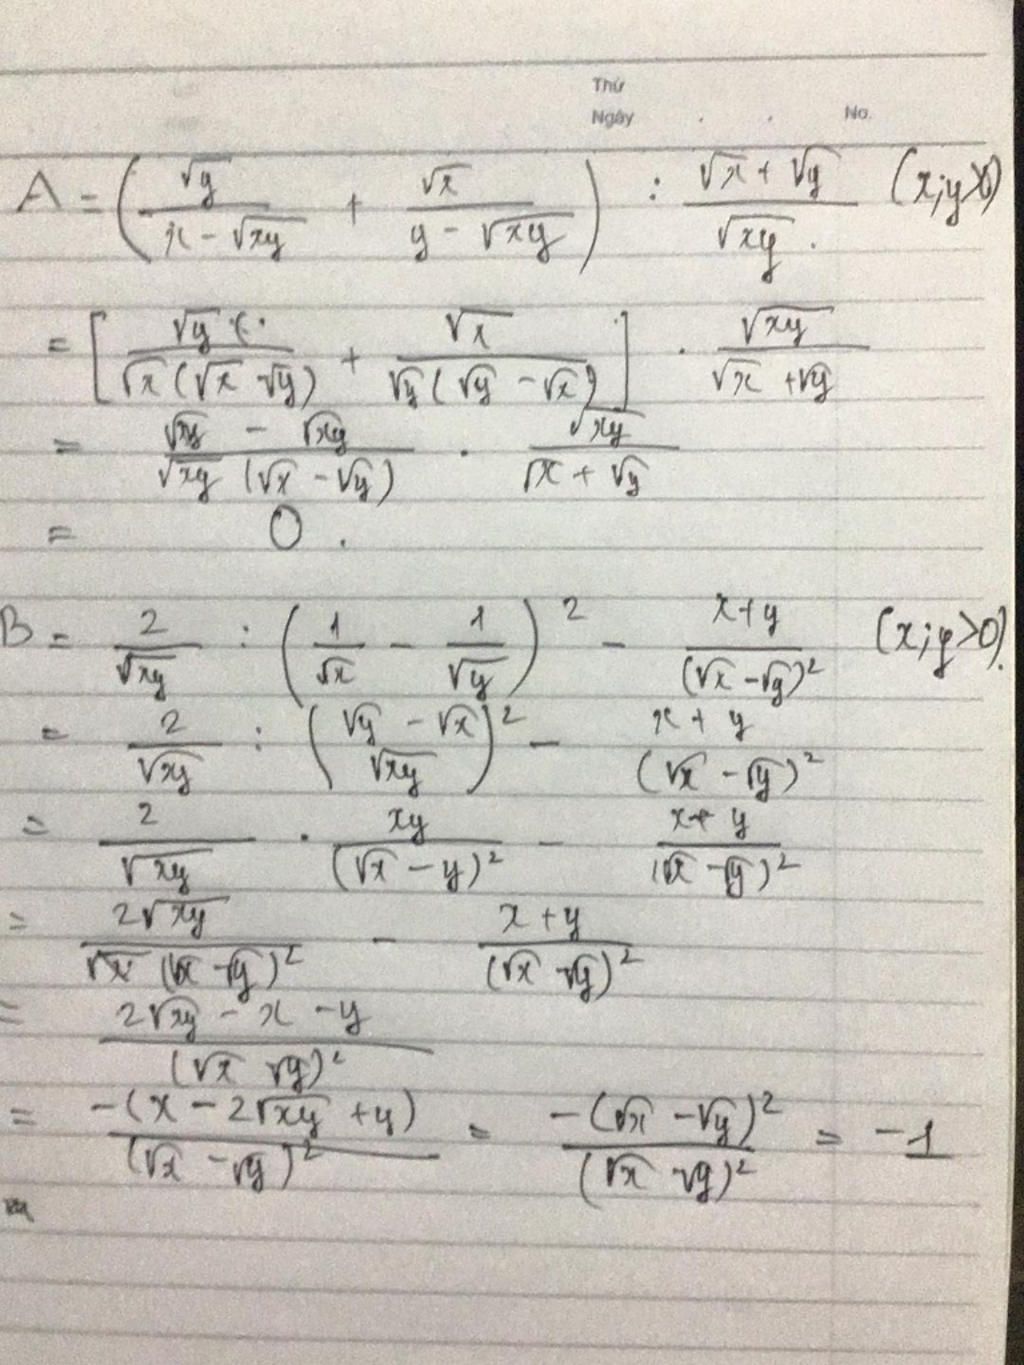 Thứ
Ngày . . No.
A = (√y/(x - √xy) + √x/(y - √xy)) : (√x + √y)/√xy . (x;y>0)
= [√y/(√x(√x √y)) + √x/(√y(√y - √x))] . √xy/(√x + √y)
= (√xy - √xy)/(√xy (√x - √y)) . √xy/(√x + √y)
= 0 .
B = 2/√xy : (1/√x - 1/√y)² - (x+y)/(√x - √y)² (x;y>0).
= 2/√xy : ((√y - √x)/√xy)² - (x + y)/(√x - √y)²
= 2/√xy . xy/(√x - y)² - (x + y)/(√x - √y)²
= 2√xy/((√x - √y)²) - (x + y)/(√x √y)²
= (2√xy - x - y)/(√x √y)²
= -(x - 2√xy + y)/(√x - √y)² = -(√x - √y)²/(√x √y)² = -1